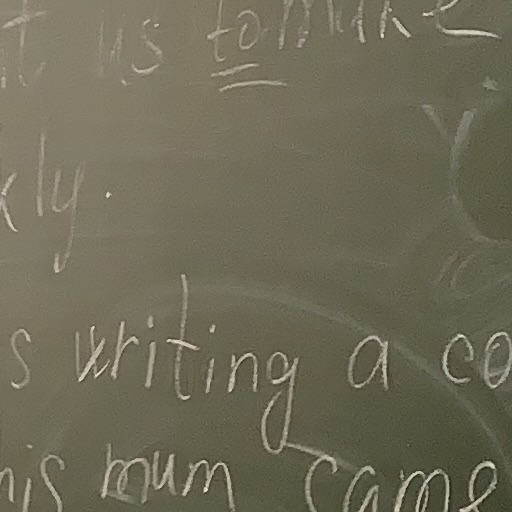 t us to make
kly.
s writing a co
his mum came